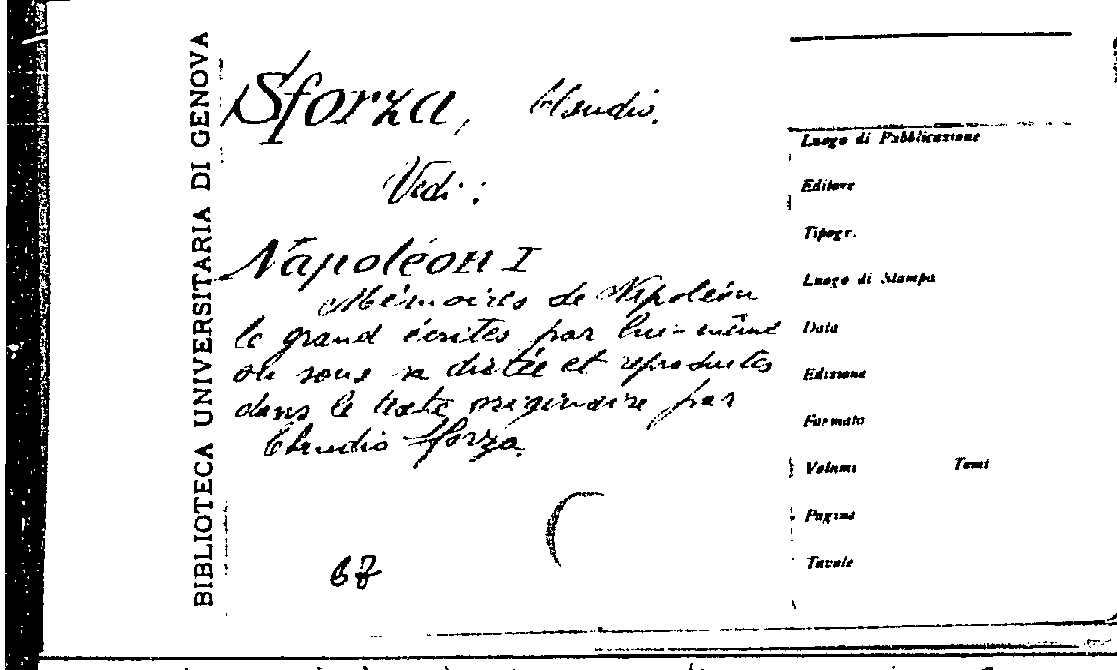 BIBLIOTECA UNIVERSITARIA DI GENOVA
Sforza, Claudio.
Vedi:
Napoléon I
Mémoires de Napoléon
le grand écrites par lui-même
ou sous sa dictée et reproduites
dans le texte originaire par
Claudio Sforza
67
Luogo di Pubblicazione
Editore
Tipogr.
Luogo di Stampa
Data
Edizione
Formato
Volumi Tomi
Pagine
Tavole